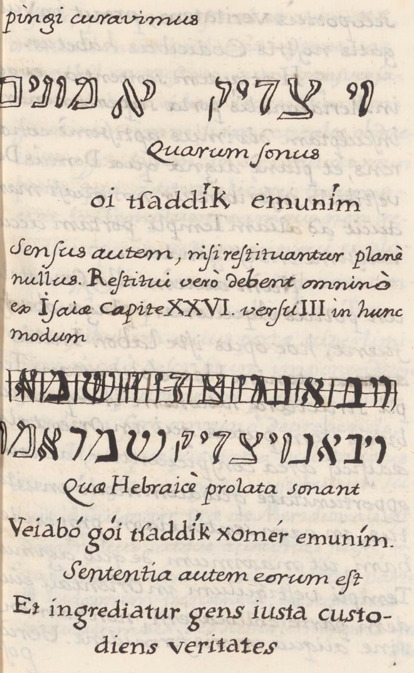 pingi curavimus
וי צדיק אמונים
Quarum sonus
oi tſaddík emuním
Sensus autem, niſi reſtituantur planè
nullus. Reſtitui verò debent omninò
ex Iſaiæ Capite XXVI. verſu III in hunc
modum
ויבאגויצדיקשמראמו
Quæ Hebraicè prolata sonant
Veiabó gói tſaddík xomér emuním.
Sententia autem eorum eſt
Et ingrediatur gens iuſta custo-
diens veritates